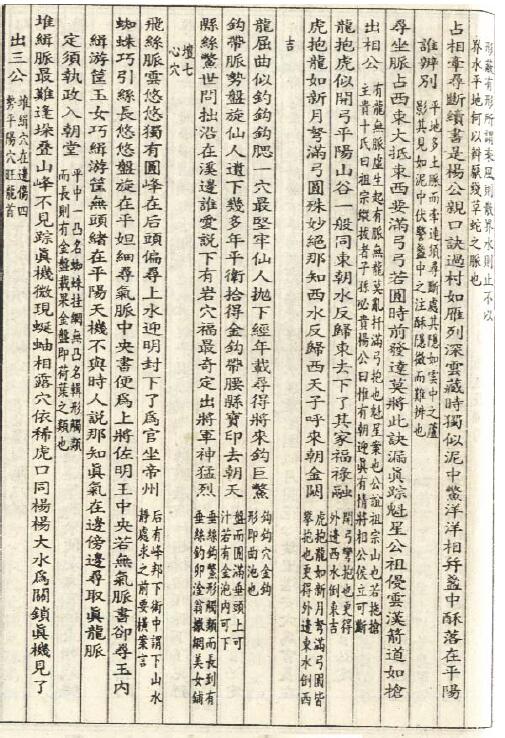 形蔽有形所謂乗風則散界水則止不以
界水平地何以辨厭殘草蛇之脈也
占相牽尋斷續書是楊公親口訣過村如雁列深雲藏時獨似泥中鱉洋洋相弁盞中酥落在平陽
誰辨別
平地多土脈而牽連須尋斷處其隱如雲中之蘆
影其見如泥中伏鱉盞中之注酥隱微而難辨也
尋坐脈占西東大抵東西要滿弓弓若圓時前發達莫將此訣漏眞踪魁星公祖侵雲漢箭道如槍
出相公
有龍無脈虛生起有脈無龍莫亂扦滿弓抱也魁星案也公祖祖宗山也若抱槍
主貴十氏曰祖宗縱拔者子孫必貴楊公曰惟有朝迎眞有情將相公侯立可斷
龍抱虎似開弓平陽山谷一般同東朝水反歸東去下了其家福祿融
開弓攣抱也更得
外邊西水倒東吉
虎抱龍如新月弩滿弓圓殊妙絕那知西水反歸西天子呼來朝金闕
虎抱龍如新月弩滿弓圓皆
攣抱也更得外邊東水倒西
吉
龍屈曲似釣鈎鈎腮一穴最堅牢仙人拋下經年載尋得將來釣巨鱉
鈎鈎穴金鈎
形即曲池也
鈎帶脈勢盤旋仙人遺下幾多年平衡拾得金鈎帶腰縣寶印去朝天
盤而圓滿垂頭上可
汁若有金泡内可下
縣絲鱉世問拙沿在溪邊誰愛説下有岩穴福最奇定出將軍神猛烈
垂絲鈎鱉形觸類而長到有
垂絲釣卵淦翁鐵網美女鋪
壇七
心穴
飛絲脈雲悠悠獨有圓峰在后頭偏尋上水迎明封下了爲官坐帝州
后有峰邦下衛中謂下山水
靜處求之前要橫案言
蜘蛛巧引絲長悠悠盤旋在平妲細尋氣脈中央書便爲上將佐明王中央若無氣脈書卻尋玉内
緝游筐玉女巧緝游筐無頭緒在平陽天機不與時人説那知眞氣在邊傍邊尋取眞龍脈
定須執政入朝堂
平中一凸名蜘蛛挂網無凸名輯形觸類
而長則有金盤載果金盤即荷葉之類也
堆緝脈最難逢垛叠山峰不見踪眞機微現蜒蚰相露穴依稀虎口同楊楊大水爲關鎖眞機見了
出三公
堆緝穴在邊傷四
勢平陽穴旺龍首